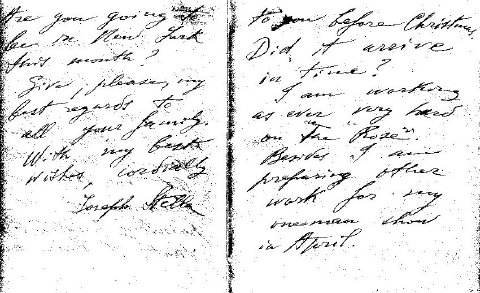 Are you going to
be in New York
this month?
Give, please, my
best regards to
all your family.
With my best
wishes, cordially
Joseph Stella
to you before Christmas.
Did it arrive
in time?
I am working
as ever very hard
on "the Rose"
Besides I am
preparing other
work for my
one-man show
in April.